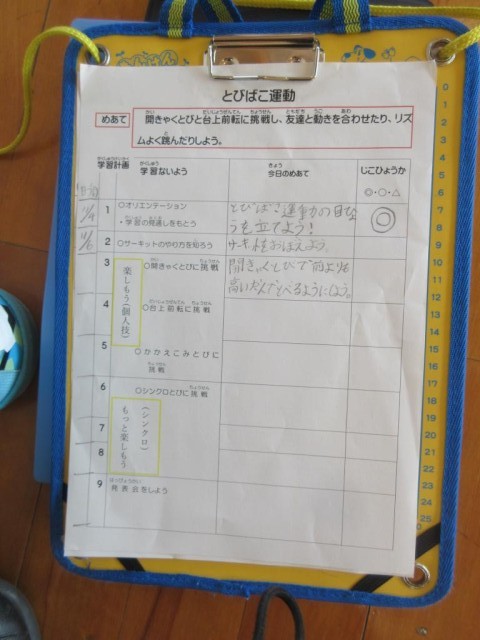 とびばこ運動
めあて
開きゃくとびと台上前転に挑戦し、友達と動きを合わせたり、リズ
ムよく跳んだりしよう。
学習計画 学習ないよう 今日のめあて じこひょうか
◎・○・△
1 ○オリエンテーション
・学習の見通しをもとう
とびばこ運動の目あ
を立てよう！
◎
2 ○サーキットのやり方を知ろう
3 ○開きゃくとびに挑戦
開きゃくとびで前よりも
高いだんをとべるようにしよう。
楽しもう(個人技)
4 ○台上前転に挑戦
5 ○かかえこみとびに
挑戦
6 ○シンクロとびに挑戦
(シンクロ)
もっと楽しもう
7
8
9 発表会をしよう
0
1
2
3
4
5
6
7
8
9
10
11
12
13
14
15
16
17
18
19
20
21
22
23
24
25